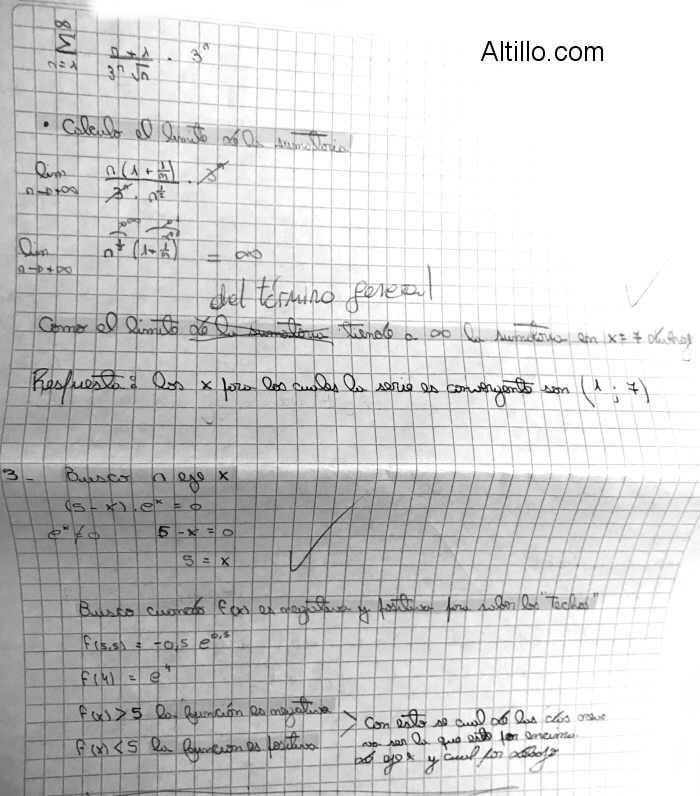 Altillo.com
∞
Σ n + 1 / 3ⁿ √n · 3ⁿ
n=1
• Calculo el limite de la sumatoria
lim n→+∞ n(1 + 1/n) / 3ⁿ · n^½ · 3ⁿ
lim n→+∞ n^½ (1 + 1/n) = ∞
del término general
Como el limite de la sumatoria tiende a ∞ la sumatoria en x=7 diverge
Respuesta: los x para los cuales la serie es convergente son (1 ; 7)
3- Busco n eje x
(5-x) . eˣ = 0
eˣ ≠ 0 5-x = 0
5 = x
Busco cuando f(x) es negativa y positiva para saber los "Techos"
f(5,5) = -0,5 e^0,5
f(4) = e⁴
f(x) > 5 la función es negativa
f(x) < 5 la funcion es positiva
Con esto se cual de las dos
va ser la que este por encima
de eje x y cual por debajo